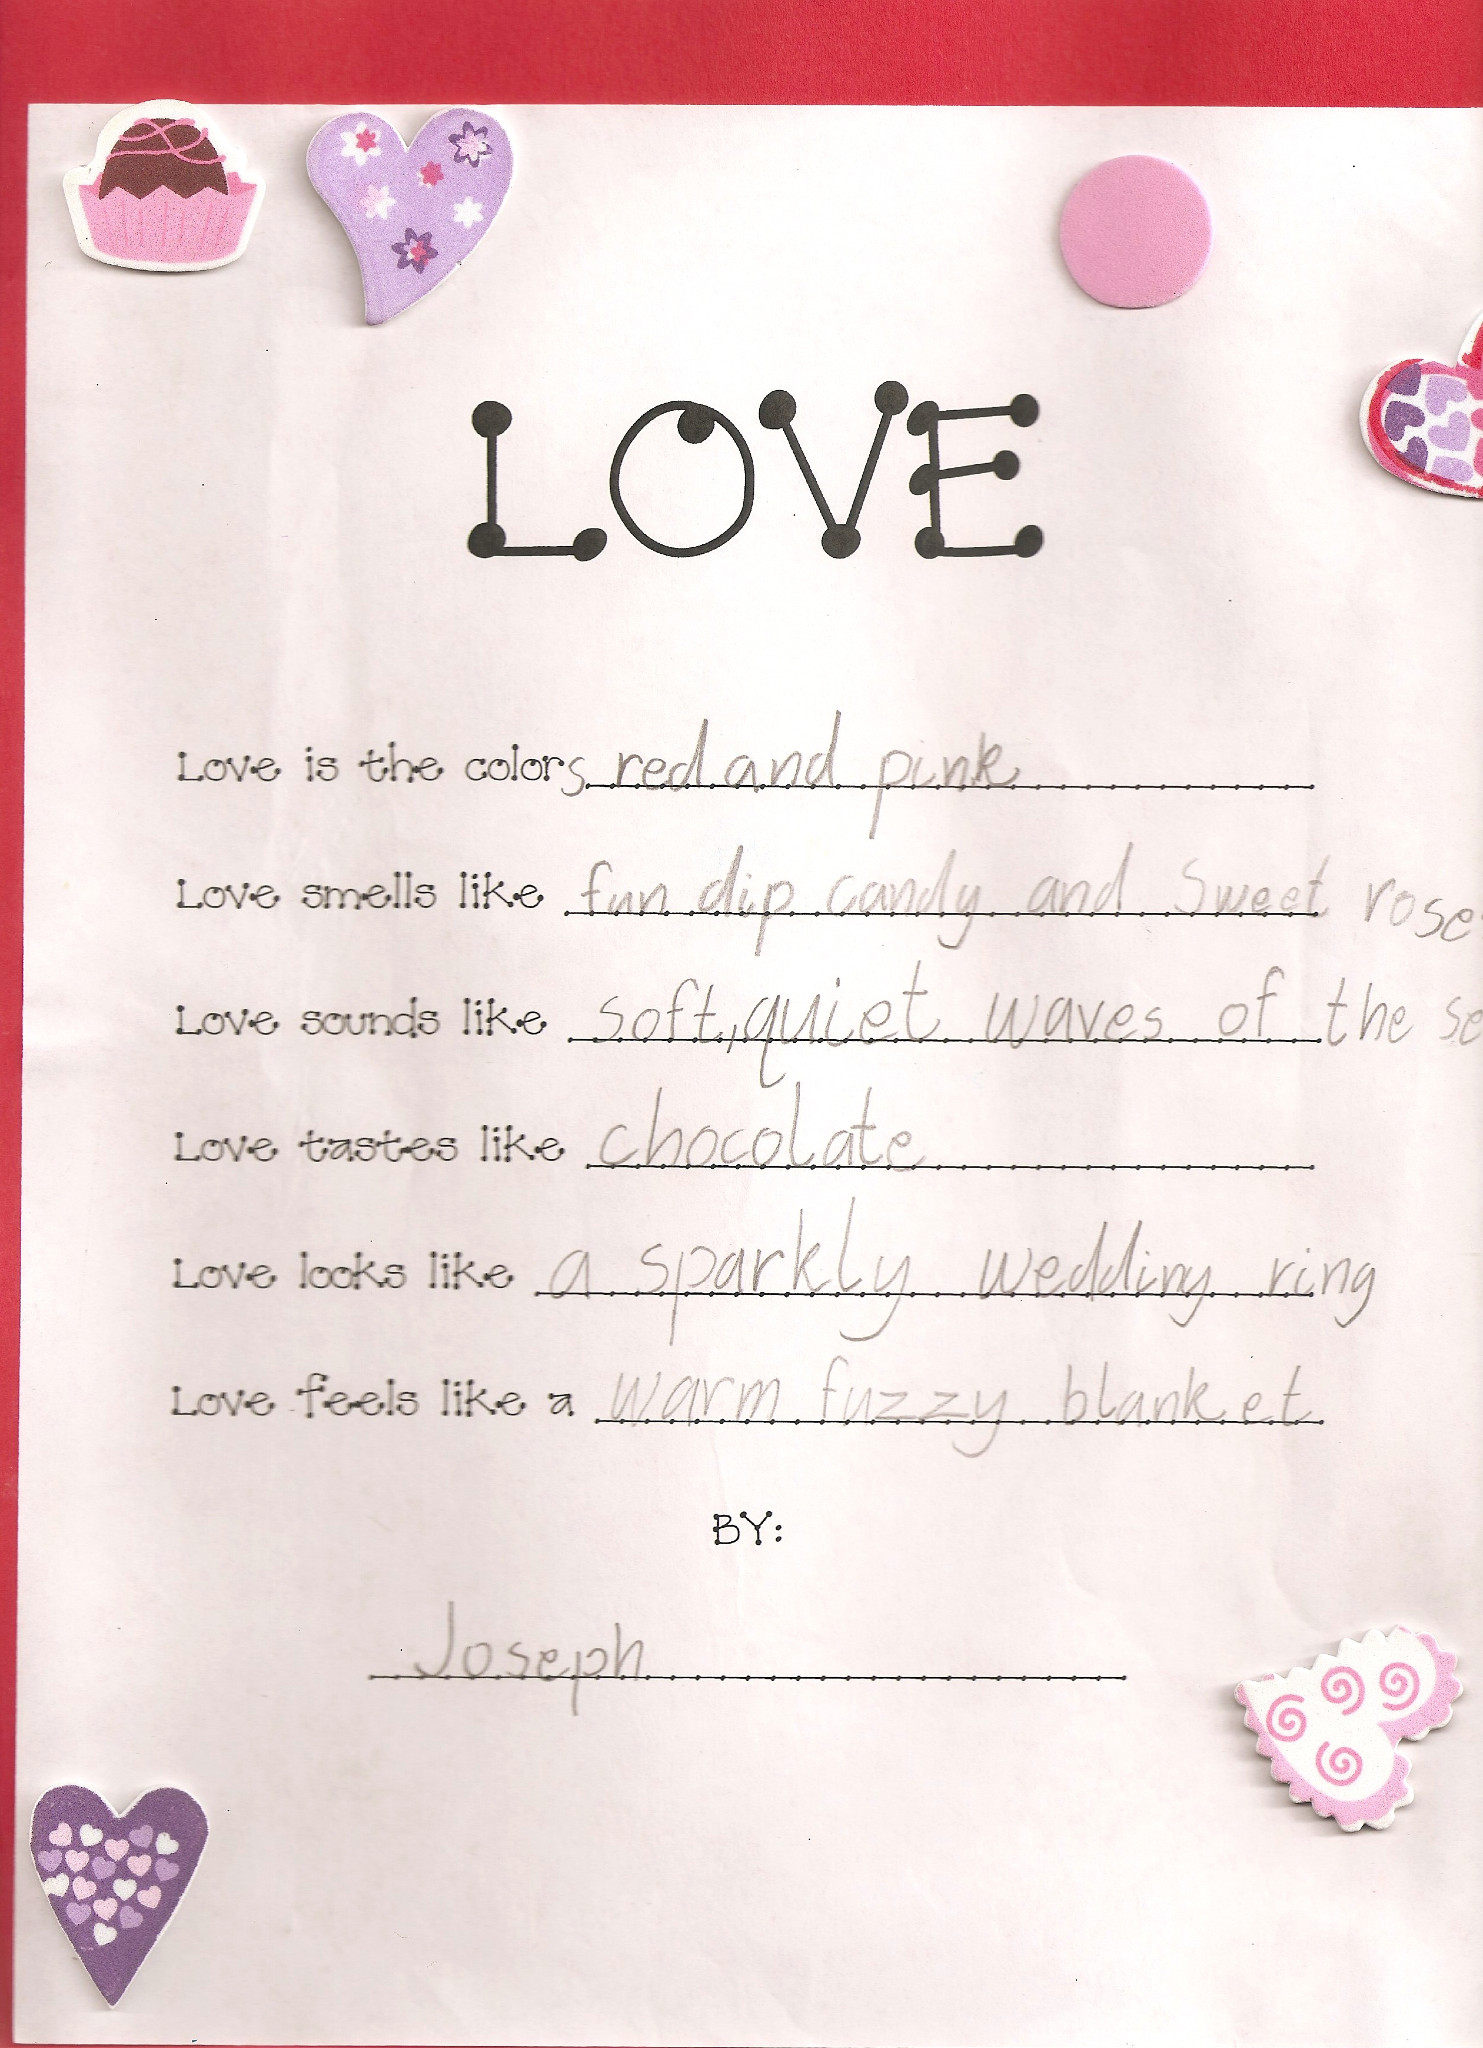 LOVE
Love is the colors red and pink
Love smells like fun dip candy and Sweet rose
Love sounds like soft, quiet waves of the se
Love tastes like chocolate
Love looks like a sparkly wedding ring
Love feels like a warm fuzzy blanket
BY:
Joseph